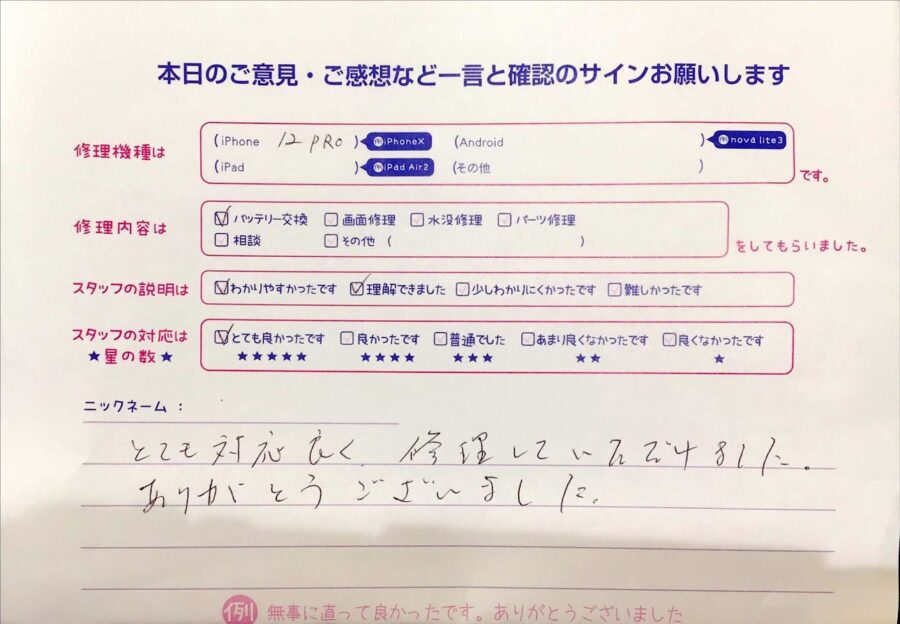 本日のご意見・ご感想など一言と確認のサインお願いします
修理機種は (iPhone 12 PRO ) iPhoneX (Android ) nova lite3
(iPad ) iPad Air2 (その他 ) です。
修理内容は ☑バッテリー交換 □画面修理 □水没修理 □パーツ修理
□相談 □その他 ( ) をしてもらいました。
スタッフの説明は ☑わかりやすかったです ☑理解できました □少しわかりにくかったです □難しかったです
スタッフの対応は ☑とても良かったです □良かったです □普通でした □あまり良くなかったです □良くなかったです
★星の数★ ★★★★★ ★★★★ ★★★ ★★ ★
ニックネーム：
とても対応良く、修理していただけました。
ありがとうございました。
例 無事に直って良かったです。ありがとうございました